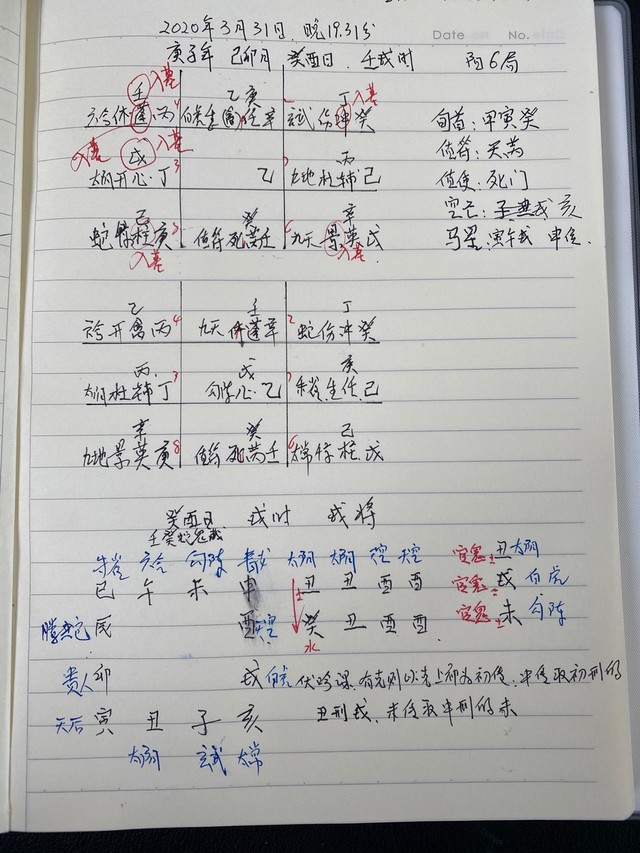 Date No.
2020年3月31日，晚19:31分
庚子年 己卯月 癸酉日、壬戌时 阳6局
壬 入墓 乙庚 丁 入墓
六合休蓬丙 4 白虎生芮任辛 玄武伤冲癸 旬首：甲寅癸
入墓 戊 入墓 丙 值符：天芮
太阴开心丁 3 乙 九地杜辅己 值使：死门
己 癸 辛 空亡：子丑 戌亥
蛇惊柱庚 8 值符死芮壬 6 九天景英戊 马星：寅午戌 申位、
入墓 入墓
乙 壬 丁
六合开禽丙 4 九天休蓬辛 2 蛇伤冲癸
丙 戊 庚
太阴杜辅丁 3 勾陈心乙 朱雀生任己
辛 癸 己
九地景英庚 8 值符死芮壬 6 太常惊柱戊
癸酉日 戌时 戌将
朱雀 六合 勾陈 太阴 太阴 空 天空 官鬼 土 丑 太阴
巳 午 未 申 丑 丑 酉 酉 官鬼 土 戌 白虎
螣蛇 辰 酉 天空 癸 丑 酉 酉 官鬼 土 未 勾陈
水
贵人 卯 戌 白虎 伏吟课，有克则以克上神为初传，中传取初刑的
天后 寅 丑 子 亥 丑刑戌，末传取中刑的未
太阴 玄武 太常